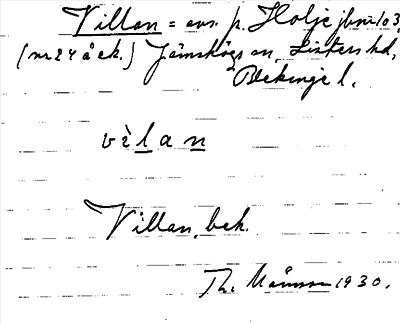 Villan = avs. p. Holje jbnr 103
(nr 24 å ek.) Jämshögs sn, Listers hd,
Blekinge l.
vìlan
Villan, bek.
Th. Månsson 1930.